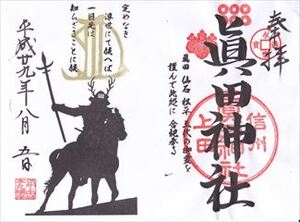 奉拝
眞田神社
信州
上田
眞田 仙石 松平 三代の御霊を
謹んで此処に合祀奉る
定めなき
浮世にて候へば
一日先は
知らざることに候
平成廿九年八月五日